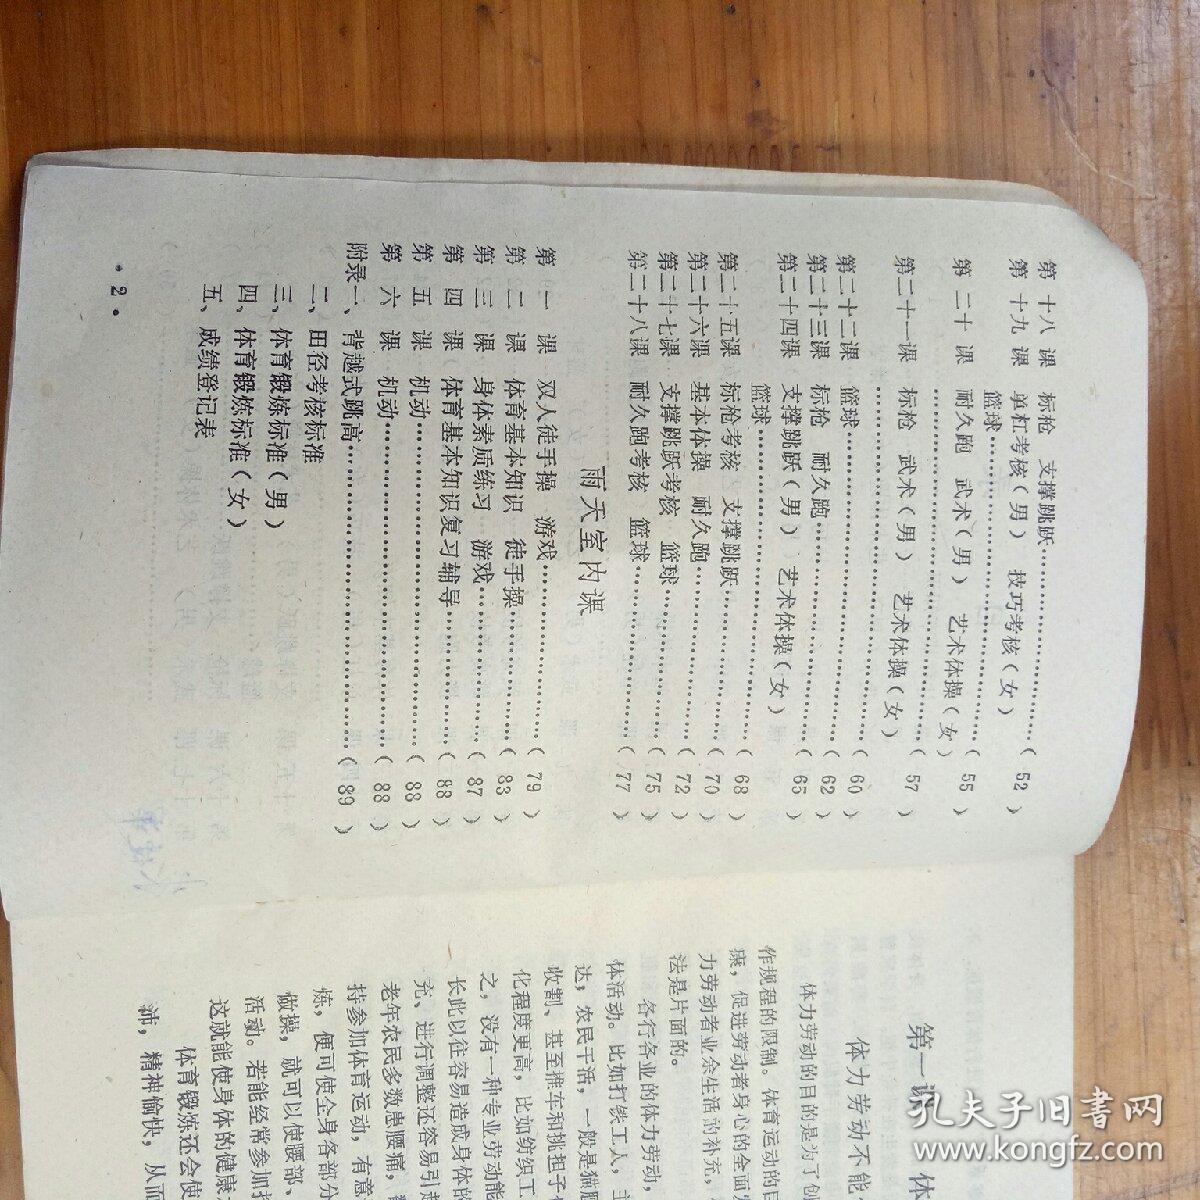 第十八课 标枪 支撑跳跃……………………(52)
第十九课 单杠考核(男) 技巧考核(女)
篮球……………………(55)
第二十课 耐久跑 武术(男) 艺术体操(女)
……………………(57)
第二十一课 标枪 武术(男) 艺术体操(女)
……………………(60)
第二十二课 篮球……………………(62)
第二十三课 标枪 耐久跑……………………(65)
第二十四课 支撑跳跃(男) 艺术体操(女)
篮球……………………(68)
第二十五课 标枪考核 支撑跳跃……………………(70)
第二十六课 基本体操 耐久跑……………………(72)
第二十七课 支撑跳跃考核 篮球……………………(75)
第二十八课 耐久跑考核 篮球……………………(77)
雨天室内课
第一课 双人徒手操 游戏……………………(79)
第二课 体育基本知识 徒手操……………………(83)
第三课 身体素质练习 游戏……………………(87)
第四课 体育基本知识复习辅导……………………(88)
第五课 机动……………………(88)
第六课 机动……………………(88)
附录一、背越式跳高……………………(89)
二、田径考核标准
三、体育锻炼标准(男)
四、体育锻炼标准(女)
五、成绩登记表
• 2 •
第一课 体
体力劳动不能
体力劳动的目的是为了创
作规程的限制。体育运动的目
康，促进劳动者身心的全面发
力劳动者业余生活的补充，
法是片面的。
各行各业的体力劳动，
体活动。比如打铁工人，主
达，农民干活，一般是猫腰
收割、甚至推车和挑担子
化程度更高，比如纺织工
之，没有一种专业劳动能
长此以往容易造成身体的
充、进行调整还容易引起
老年农民多数患腰痛，
持参加体育运动，有意
炼，便可使全身各部分
做操，就可以使腰部、
活动。若能经常参加
这就能使身体的健康
体育锻炼还会使
沛，精神愉快，从而
孔夫子旧书网
www.kongfz.com